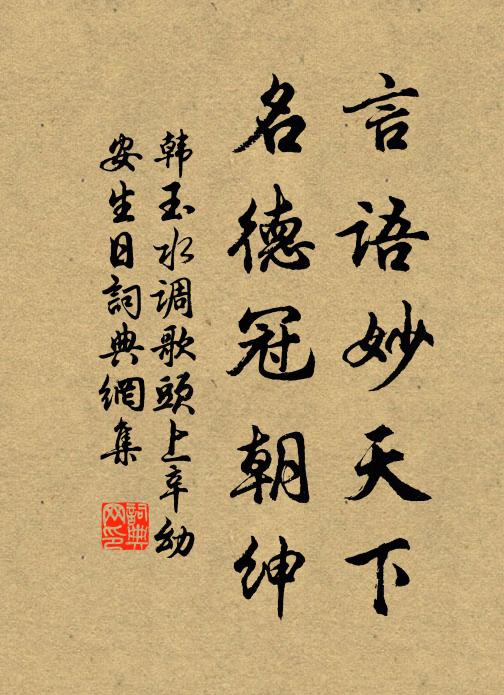 言語妙天下
名德冠朝紳
韩玉水调歌頭上辛幼
安生日詞典網集
詞典
网印